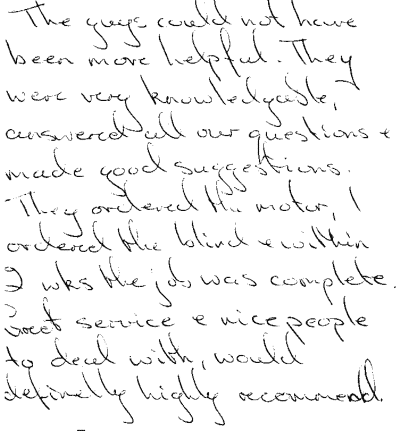 The guys could not have
been more helpful. They
were very knowledgable,
answered all our questions &
made good suggestions.
They ordered the motor, I
ordered the blind & within
2 wks the job was complete.
Great service & nice people
to deal with, would
definitely highly recommend.